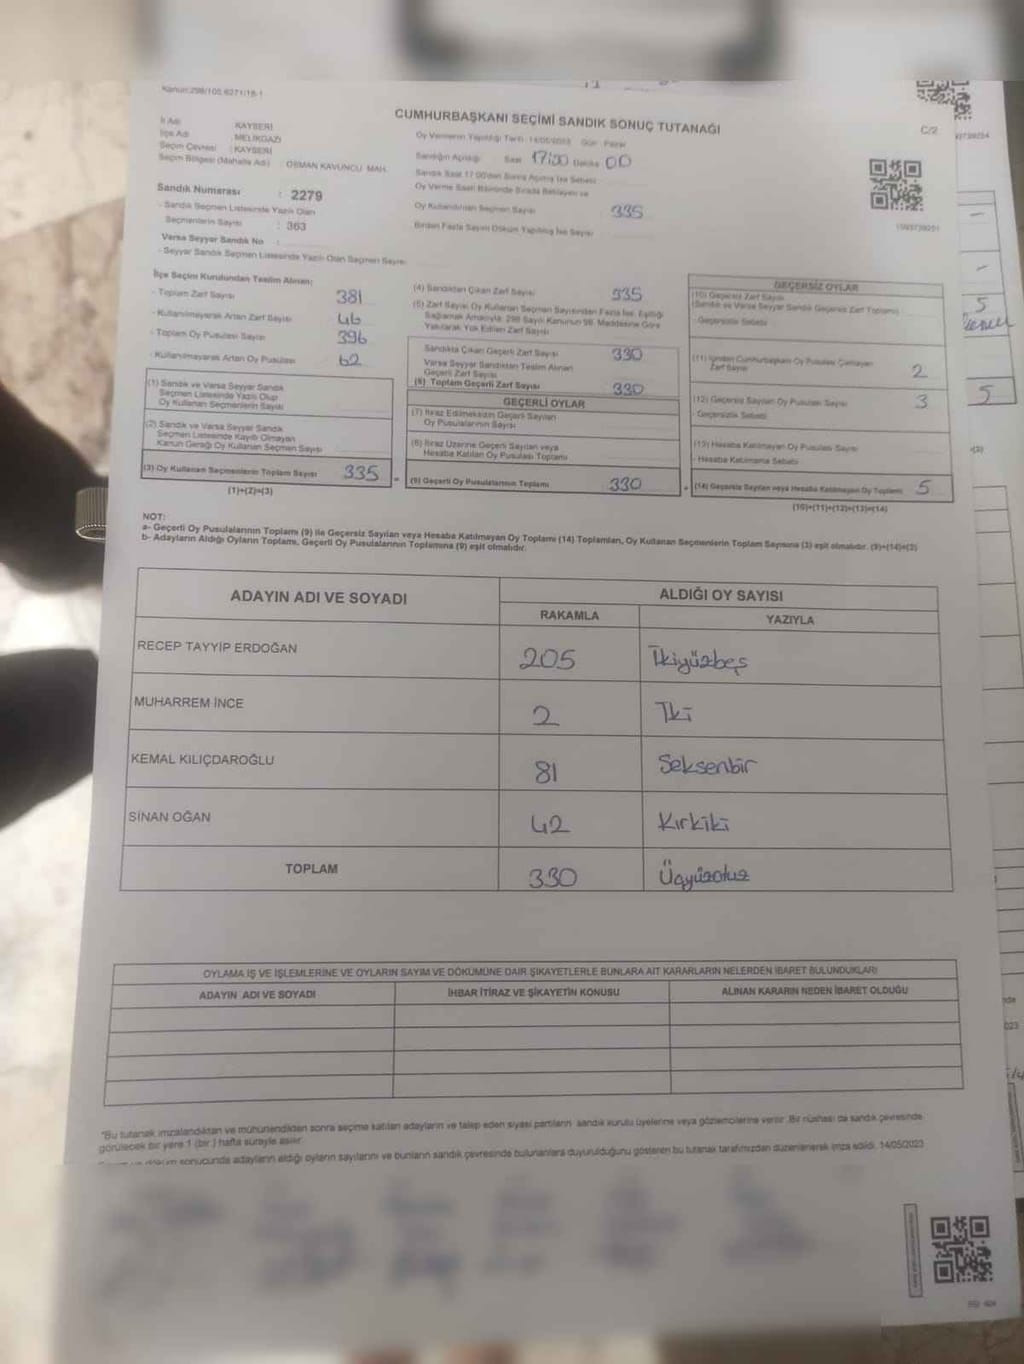 Kanun:298/105,6271/18-1
CUMHURBAŞKANI SEÇİMİ SANDIK SONUÇ TUTANAĞI
C/2
İl Adı : KAYSERİ
İlçe Adı : MELİKGAZİ
Seçim Çevresi : KAYSERİ
Seçim Bölgesi (Mahalle Adı) : OSMAN KAVUNCU MAH.
Sandık Numarası : 2279
- Sandık Seçmen Listesinde Yazılı Olan
Seçmenlerin Sayısı : 363
Varsa Seyyar Sandık No :
- Seyyar Sandık Seçmen Listesinde Yazılı Olan Seçmen Sayısı
Oy Vermenin Yapıldığı Tarih : 14/05/2023 Gün : Pazar
Sandığın Açıldığı Saat 17:00 Dakika 00
Sandık Saat 17:00'den Sonra Açılmış İse Sebebi
Oy Verme Saati Bitiminde Sırada Bekleyen ve
Oy Kullandırılan Seçmen Sayısı 335
Birden Fazla Sayım Döküm Yapılmış İse Sayısı
İlçe Seçim Kurulundan Teslim Alınan;
- Toplam Zarf Sayısı 381
- Kullanılmayarak Artan Zarf Sayısı 46
- Toplam Oy Pusulası Sayısı 396
- Kullanılmayarak Artan Oy Pusulası 62
(1) Sandık ve Varsa Seyyar Sandık
Seçmen Listesinde Yazılı Olup
Oy Kullanan Seçmenlerin Sayısı
(2) Sandık ve Varsa Seyyar Sandık
Seçmen Listesinde Kayıtlı Olmayan
Kanun Gereği Oy Kullanan Seçmen Sayısı
(3) Oy Kullanan Seçmenlerin Toplam Sayısı 335
(1)+(2)=(3)
(4) Sandıktan Çıkan Zarf Sayısı 335
(5) Zarf Sayısı Oy Kullanan Seçmen Sayısından Fazla İse, Eşitliği
Sağlamak Amacıyla, 298 Sayılı Kanunun 98. Maddesine Göre
Yakılarak Yok Edilen Zarf Sayısı
Sandıkta Çıkan Geçerli Zarf Sayısı 330
Varsa Seyyar Sandıktan Teslim Alınan
Geçerli Zarf Sayısı
(6) Toplam Geçerli Zarf Sayısı 330
GEÇERLİ OYLAR
(7) İtiraz Edilmeksizin Geçerli Sayılan
Oy Pusulalarının Sayısı
(8) İtiraz Üzerine Geçerli Sayılan veya
Hesaba Katılan Oy Pusulası Toplamı
(9) Geçerli Oy Pusulalarının Toplamı 330
GEÇERSİZ OYLAR
(10) Geçersiz Zarf Sayısı
(Sandık ve Varsa Seyyar Sandık Geçersiz Zarf Toplamı)
- Geçersizlik Sebebi
(11) İçinden Cumhurbaşkanı Oy Pusulası Çıkmayan
Zarf Sayısı 2
(12) Geçersiz Sayılan Oy Pusulası Sayısı 3
- Geçersizlik Sebebi
(13) Hesaba Katılmayan Oy Pusulası Sayısı
- Hesaba Katılmama Sebebi
(14) Geçersiz Sayılan veya Hesaba Katılmayan Oy Toplamı 5
(10)+(11)+(12)+(13)=(14)
NOT:
a- Geçerli Oy Pusulalarının Toplamı (9) ile Geçersiz Sayılan veya Hesaba Katılmayan Oy Toplamı (14) Toplamları, Oy Kullanan Seçmenlerin Toplam Sayısına (3) eşit olmalıdır. (9)+(14)=(3)
b- Adayların Aldığı Oyların Toplamı, Geçerli Oy Pusulalarının Toplamına (9) eşit olmalıdır.
ADAYIN ADI VE SOYADI
ALDIĞI OY SAYISI
RAKAMLA YAZIYLA
RECEP TAYYİP ERDOĞAN 205 İkiyüzbeş
MUHARREM İNCE 2 İki
KEMAL KILIÇDAROĞLU 81 Seksenbir
SİNAN OĞAN 42 Kırkiki
TOPLAM 330 Üçyüzotuz
OYLAMA İŞ VE İŞLEMLERİNE VE OYLARIN SAYIM VE DÖKÜMÜNE DAİR ŞİKAYETLERLE BUNLARA AİT KARARLARIN NELERDEN İBARET BULUNDUKLARI
ADAYIN ADI VE SOYADI İHBAR İTİRAZ VE ŞİKAYETİN KONUSU ALINAN KARARIN NEDEN İBARET OLDUĞU
"Bu tutanak imzalandıktan ve mühürlendikten sonra seçime katılan adayların ve talep eden siyasi partilerin sandık kurulu üyelerine veya gözlemcilerine verilir. Bir nüshası da sandık çevresinde
görülecek bir yere 1 (bir) hafta süreyle asılır.
sonucunda adayların aldığı oyların sayılarını ve bunların sandık çevresinde bulunanlara duyurulduğunu gösteren bu tutanak tarafımızdan düzenlenerek imza edildi. 14/05/2023